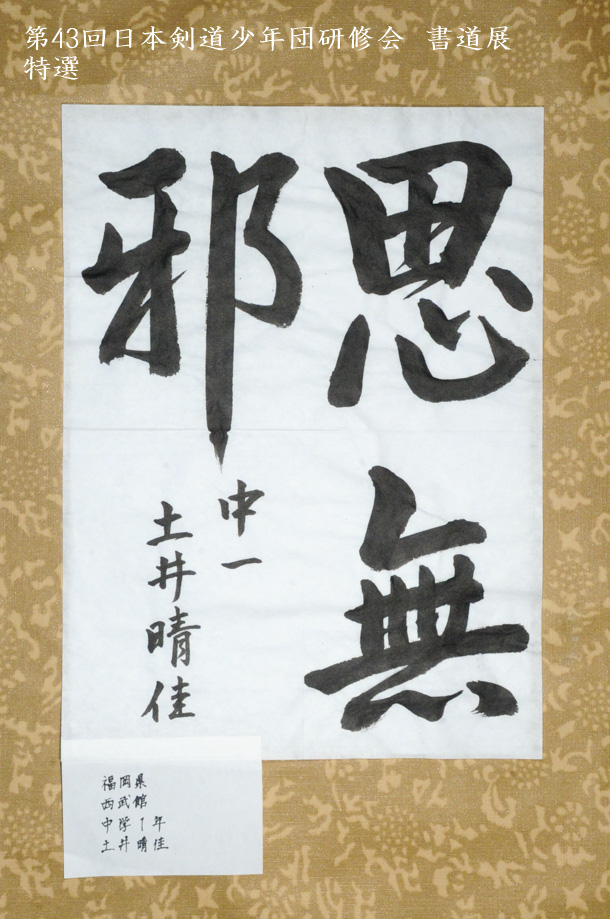 第43回日本剣道少年団研修会 書道展
特選
思無
邪
中一
土井晴佳
福岡県
西武館
中学1年
土井晴佳